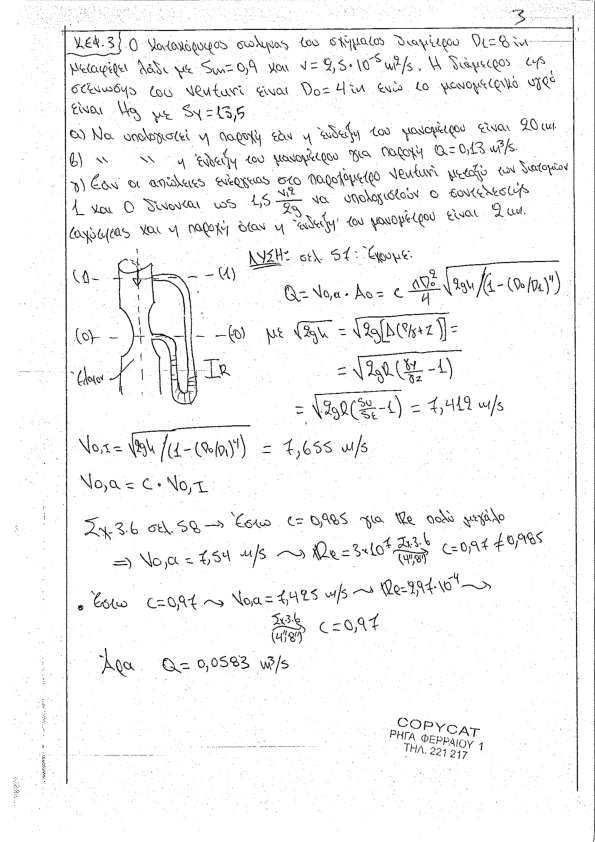 3
ΚΕΦ.3 Ο κατακόρυφος σωλήνας του σχήματος διαμέτρου D₁=8 in
μεταφέρει λάδι με Sm=0,9 και ν=2,5·10⁻⁵ m²/s. Η διάμετρος της
στένωσης του venturi είναι D₀=4 in ενώ το μανομετρικό υγρό
είναι Hg με Sγ=13,5
α) Να υπολογιστεί η παροχή εάν η ένδειξη του μανομέτρου είναι 20 cm.
β) " " η ένδειξη του μανομέτρου για παροχή Q=0,13 m³/s.
γ) Εάν οι απώλειες ενέργειας στο παροχόμετρο venturi μεταξύ των διατομών
1 και 0 δίνονται ως 1,5 V₁²/2g να υπολογιστούν ο συντελεστής
ταχύτητας και η παροχή όταν η ένδειξη του μανομέτρου είναι 2 cm.
ΛΥΣΗ: σελ. 57: Έχουμε:
Q = V₀,α · A₀ = c πD₀²/4 √2gh/(1-(D₀/D₁)⁴)
με √2gh = √2g[Δ(P/γ+z)] =
= √2gR(γγ/γε - 1)
= √2gR(Sυ/Sε - 1) = 7,412 m/s
(1) -(1)
(0) -(0)
R
Έλαιον
V₀,I = √2gh/(1-(D₀/D₁)⁴) = 7,655 m/s
V₀,α = C · V₀,I
Σχ. 3.6 σελ. 58 → Έστω c=0,985 για Re πολύ μεγάλο
⇒ V₀,α = 7,54 m/s ⤳ Re = 3×10⁷ Σχ.3.6 (4",8") C=0,97 ≠ 0,985
• Έστω c=0,97 ⤳ V₀,α = 7,425 m/s ⤳ Re=2,97·10⁻⁴ ⤳
Σχ.3.6 (4",8") C=0,97
Άρα Q = 0,0583 m³/s
COPYCAT
ΡΗΓΑ ΦΕΡΡΑΙΟΥ 1
ΤΗΛ. 221 217